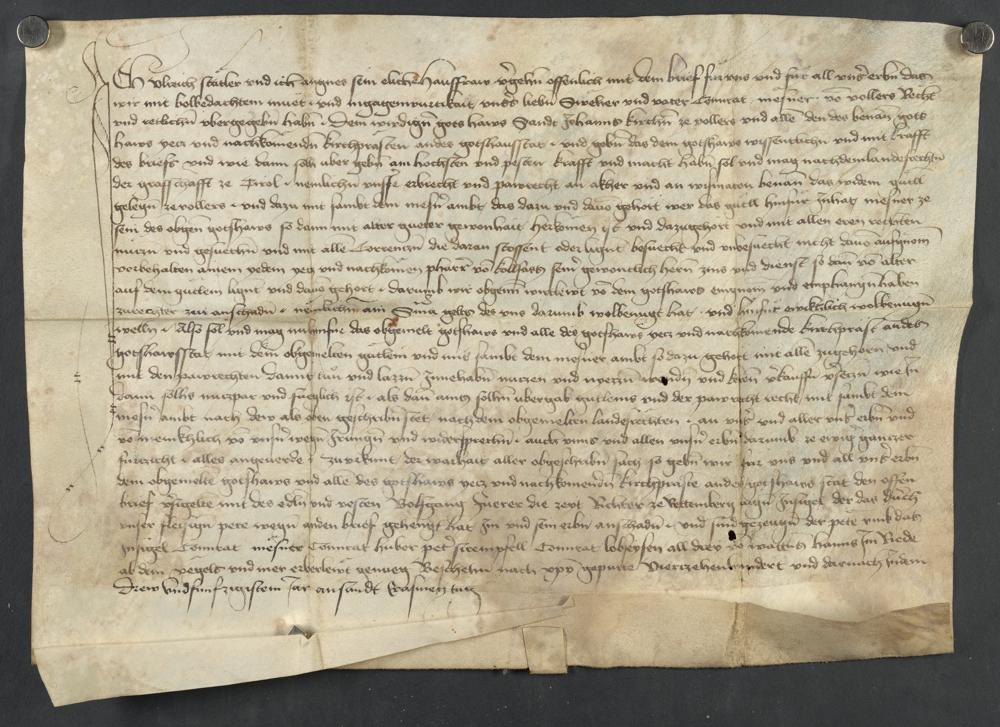 Ich Ulreich Statler und ich Angnes sein eliche Hauffraw vergehn offenlich mit dem brief fur uns und fur all unser erbn das
wir mit wolbedachtem muet und ingagenwurtikait unsers liebn Sweher und vater Connrat mesner vo vollers Recht
und redlichn ubergegebn habn Dem wirdign gots haws Sandt Johanns kirchn ze vollers und alle den des benan gots
haws yecz und nachkomendn kirchprasten an des gotshawsstat und gebn das dem gotshaws wissentlichn und mit krafft
des briefs und wie dann solh uber gebn am hochsten und pesten krafft und macht habn sol und mag nach dem landsrechtn
der grafschafft ze Tirol nemlichn unsser erbrecht und pawrecht an akher und an wismaten benan das widem guetl
gelegn ze vollers und dazu mit sambt dem mesner ambt das dazu und davo gehort wer das guetl hinfur inhat mesner ze
sein des obgen gotshaws so dann mit alter gueter gewonhait herkomen ist und dazugehort und mit allen eren rechten
nuczn und gesuechn und mit alle das daran stossent oder ligent besuecht und unbesuecht nicht davo ausgnom
vorbehalten ainem yedem yecz und nachkomen pharrer vo kolsass seiner gewondlich herrn zins und dienst so dan vo alter
auf dem guetlein lignt und davo gehort darumb wir obgenn wirtlewt vo dem gotshaws eingnom und emphangn haben
an schadn nemlichn ain Suma gelts des uns darumb wolbenuegt hat und hinfur wolbenuegn
welln Also sol und mag nu hinfur das obgemelt gotshaws und alle des gotshaws yecz und nachkomende kirchprast an des
gotshawsstat mit dem obgemelten guetlein und mit sambt dem mesner ambt so dazu gehort mit alle zugehorn und
mit den pawrechten damit tun und lazzn Innehabn nuczen und niezzn wendn und kern verkauffn verseczn wie In
dann solhs nuczpar und fueglich ist als dan ains solhn ubergab guetleins und der pawrecht recht mit sambt dem
mesner ambt nach dew als oben geschribn stet nach dem obgemelten landsrechten an unser und aller unser erbn und
vo menikhlich vo unsern wegn Irrungn und widersprechn auch unns und allen unsern erbn darumb ze ewiger ganczer
furczicht alles angeverde zu urkunt der warhait aller obgeschribn sach so gebn wir fur uns und all unser erbn
dem obgemelte gotshaws und alle des gotshaws yecz und nachkomendn kirchprast an des gotshaws stat den offen
brief versigelte mit des edln und vesten Wolfgang die zeyt Richter ze Rettenberg aign Insigel der das durch
unser fleisign pete wegn an den brief gehengt hat Im und sein erbn an schadn und sind gezeugn der pete umb das
Insigel Connrat mesner Connrat huber peter Connrat lobseysen all drey vo wattens Hanns im Riede
ab dem vogelt und mer erberlewt genueg Beschehn nach xpi gepurte Vierczehenhundert und darnach indem
Drew undfunfczigistem Jar an sandt Erasmen tag